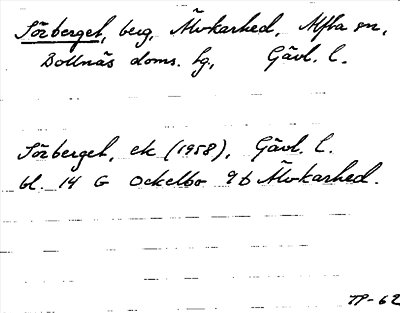 Sörberget, berg, Älvkarhed, Alfta sn,
Bollnäs doms. hg, Gävl. l.
Sörberget, ek (1958), Gävl. l.
bl. 14 G Ockelbo 9 b Älvkarhed.
TP-62